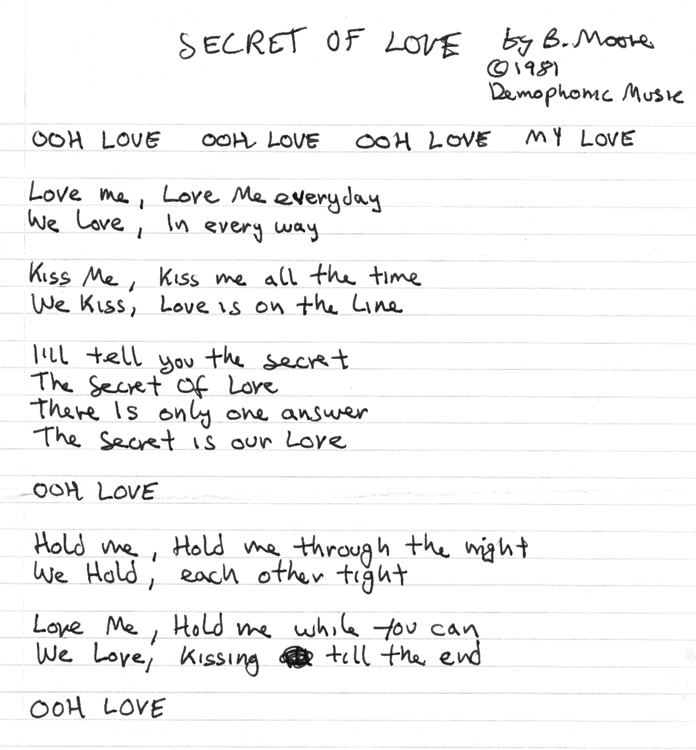 SECRET OF LOVE by B. Moore
©1981
Demophonic Music
OOH LOVE OOH LOVE OOH LOVE MY LOVE
Love me, Love Me everyday
We Love, In every way
Kiss Me, Kiss me all the time
We Kiss, Love is on the Line
I'll tell you the secret
The Secret Of Love
There Is only one answer
The Secret is our Love
OOH LOVE
Hold me, Hold me through the night
We Hold, each other tight
Love Me, Hold me while you can
We Love, Kissing till the end
OOH LOVE